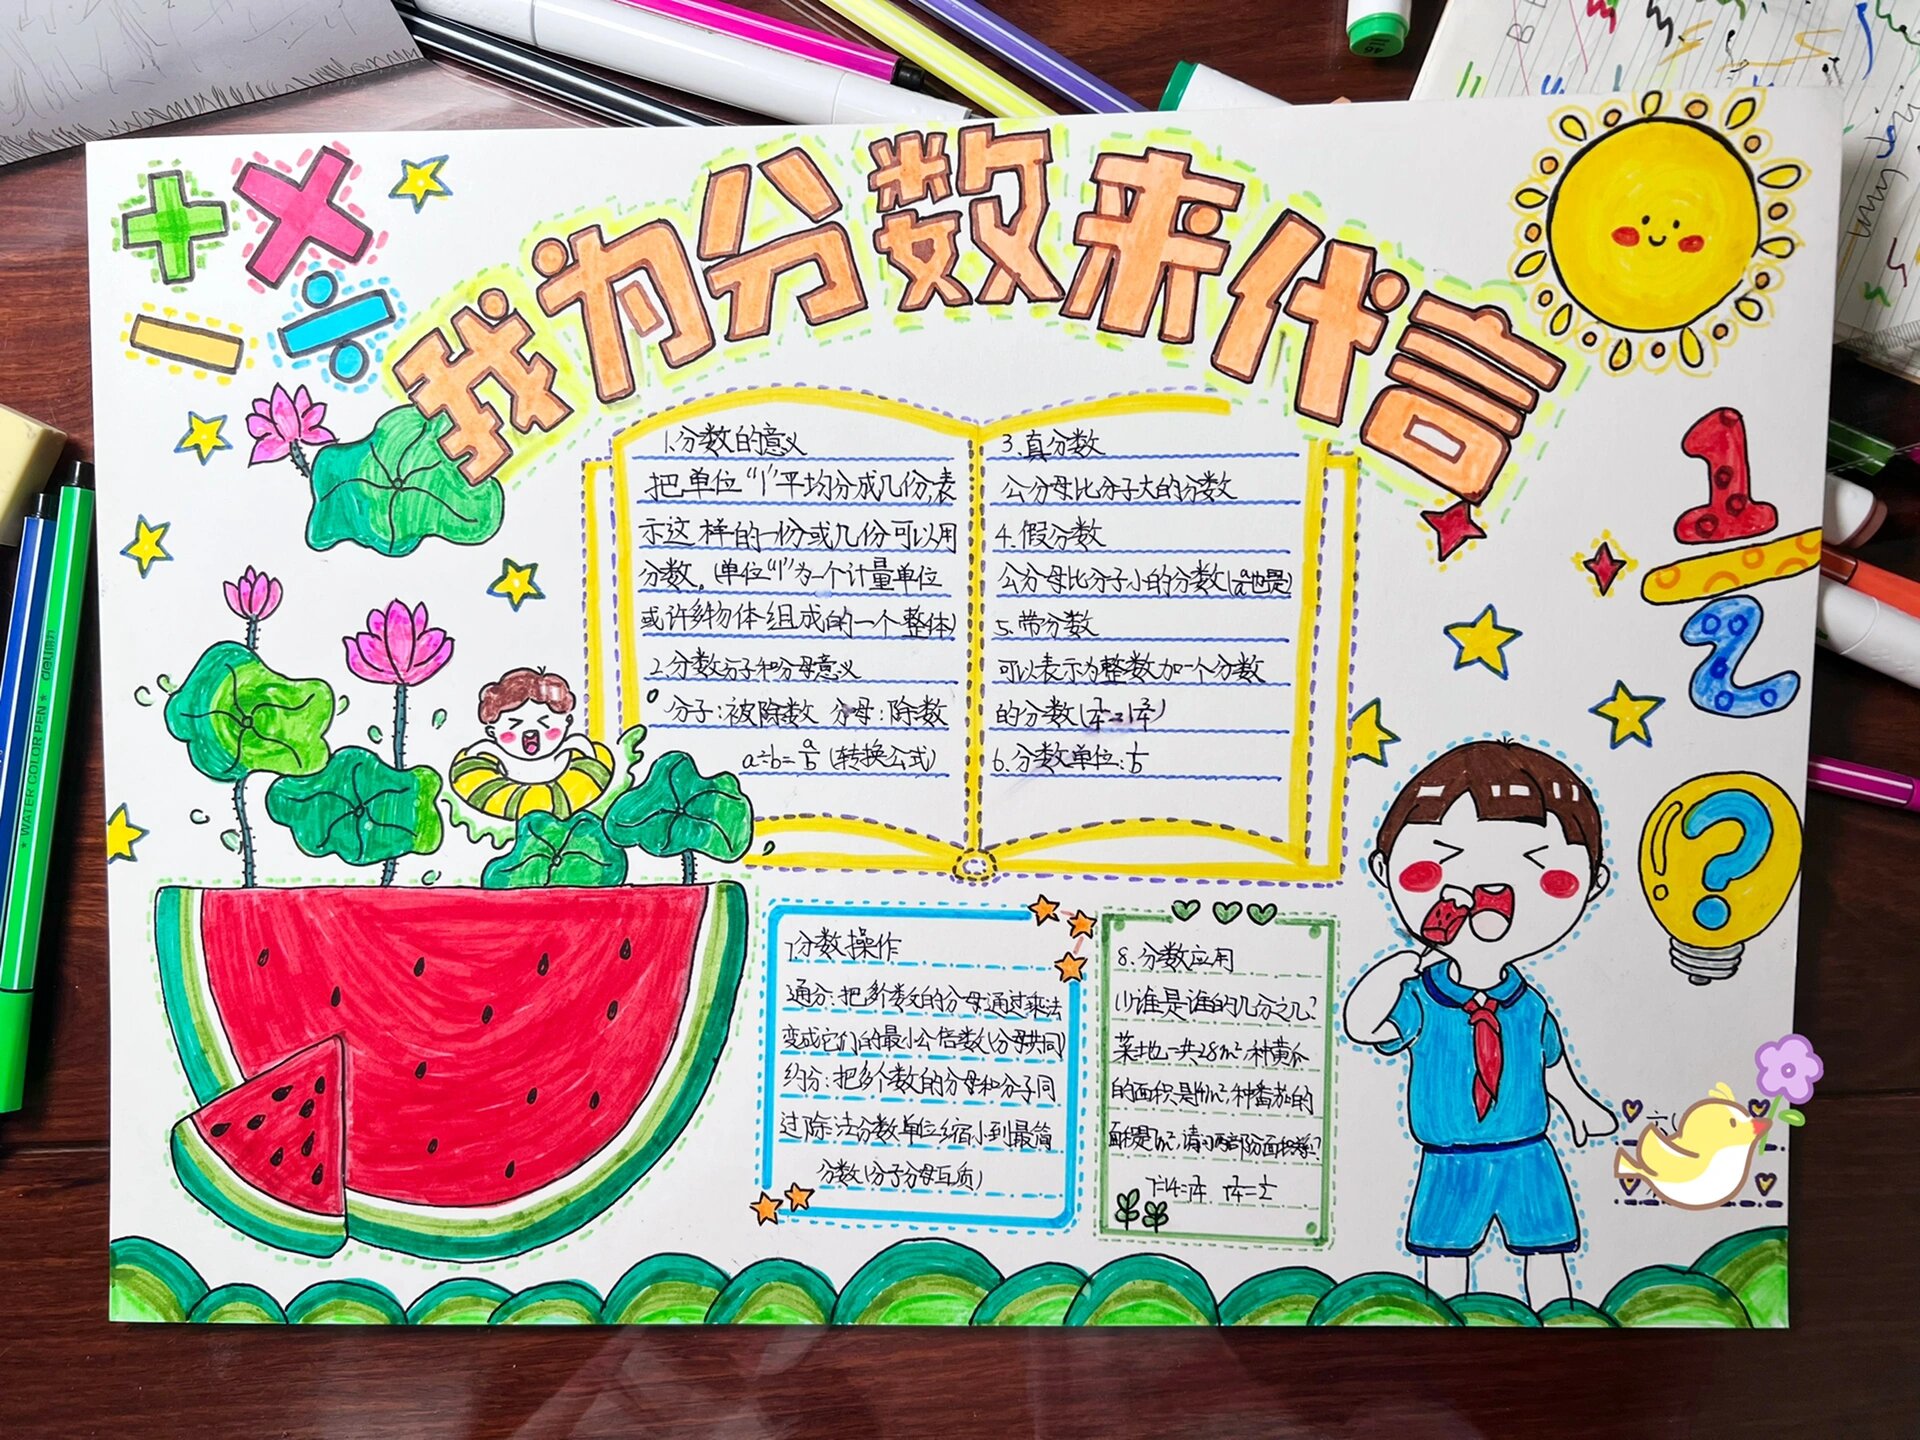 我为分数来代言
1.分数的意义
把单位“1”平均分成几份,表
示这样的一份或几份可以用
分数。(单位“1”为一个计量单位
或许多物体组成的一个整体)
2.分数分子和分母意义
分子:被除数 分母:除数
a÷b=a/b (转换公式)
3.真分数
公分母比分子大的分数
4.假分数
公分母比分子小的分数(a/a也是)
5.带分数
可以表示为整数加一个分数
的分数
6.分数单位:1/b
1
2
?
7.分数操作
通分:把多个数的分母通过乘法
变成它们的最小公倍数(分母共同)
约分:把多个数的分母和分子同
过除法分数单位缩小到最简
分数(分子分母互质)
8.分数应用
(1)谁是谁的几分之几?
菜地一共28m²,种黄瓜
的面积是14m²,种番茄的
面积是7m²,请问两部分面积
7÷14=7/14 7/14=1/2
六
WATER COLOR PEN * deli
46